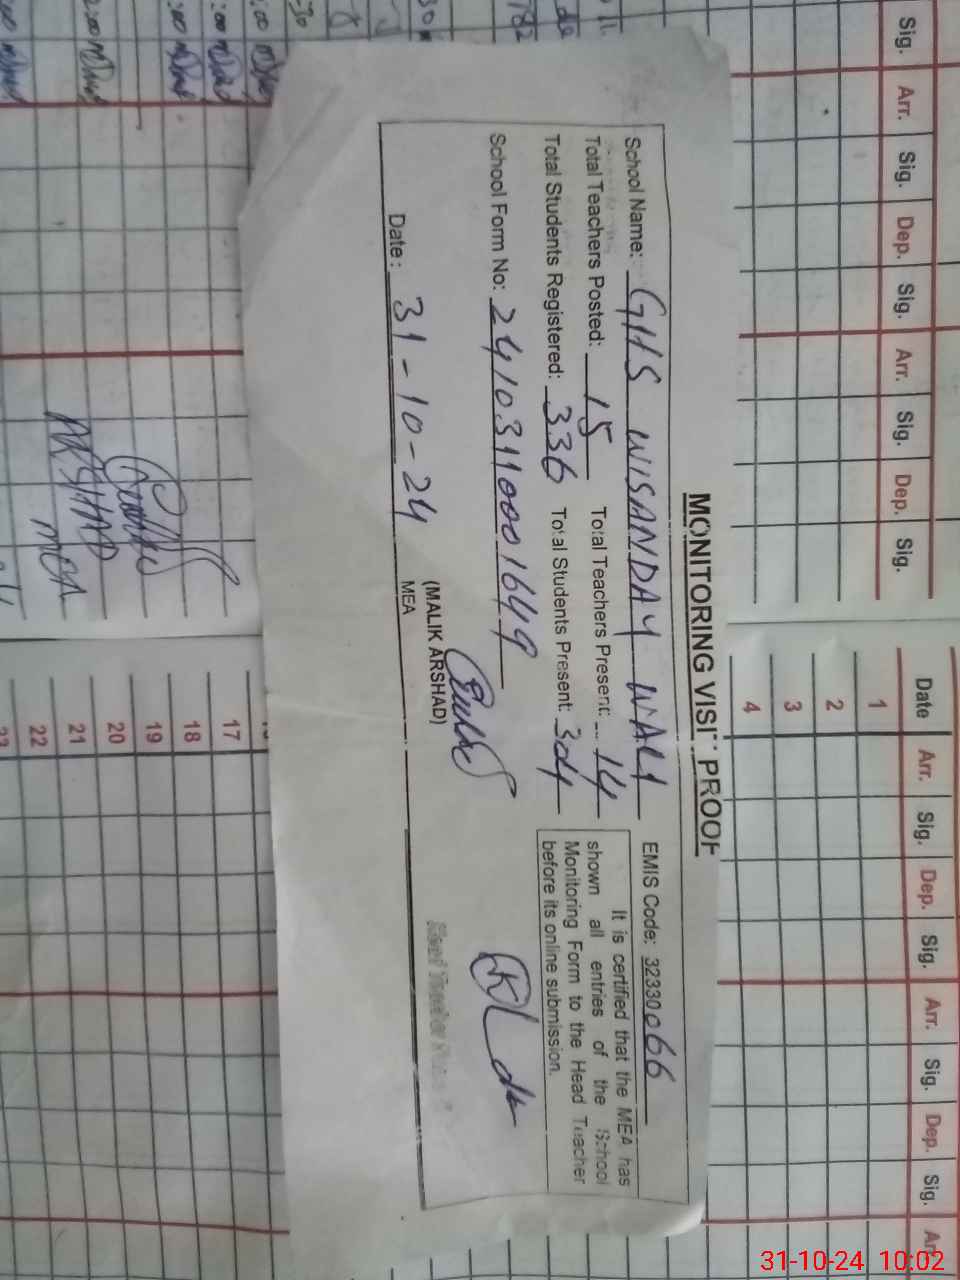 MONITORING VISIT PROOF
School Name: GHS WISANDAY WALI EMIS Code: 32330066
Total Teachers Posted: 15 Total Teachers Present: 14
Total Students Registered: 336 Total Students Present: 304
It is certified that the MEA has
shown all entries of the School
Monitoring Form to the Head Teacher
before its online submission.
School Form No: 24103110001649
(MALIK ARSHAD)
MEA
Date: 31-10-24
ARSHAD
MEA
Sig. Arr. Sig. Dep. Sig. Arr. Sig. Dep. Sig.
Date Arr. Sig. Dep. Sig. Arr. Sig. Dep. Sig.
1
2
3
4
17
18
19
20
21
22
23
31-10-24 10:02